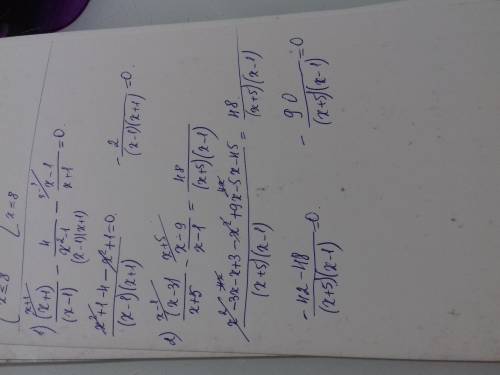 { x ≤ 8 { x = 8
1) (x+1)/(x-1) - 4/(x²-1) - (x-1)/(x+1) = 0
(x-1)(x+1)
(x²+1-4-x²+1)/((x-1)(x+1)) = 0 - 2/((x-1)(x+1)) = 0.
2) (x-3)/(x+5) - (x-9)/(x-1) = 48/((x+5)(x-1))
(x²-3x-x+3-x²+9x-5x-45)/((x+5)(x-1)) = 48/((x+5)(x-1))
(-42-48)/((x+5)(x-1)) = 0. - 90/((x+5)(x-1)) = 0